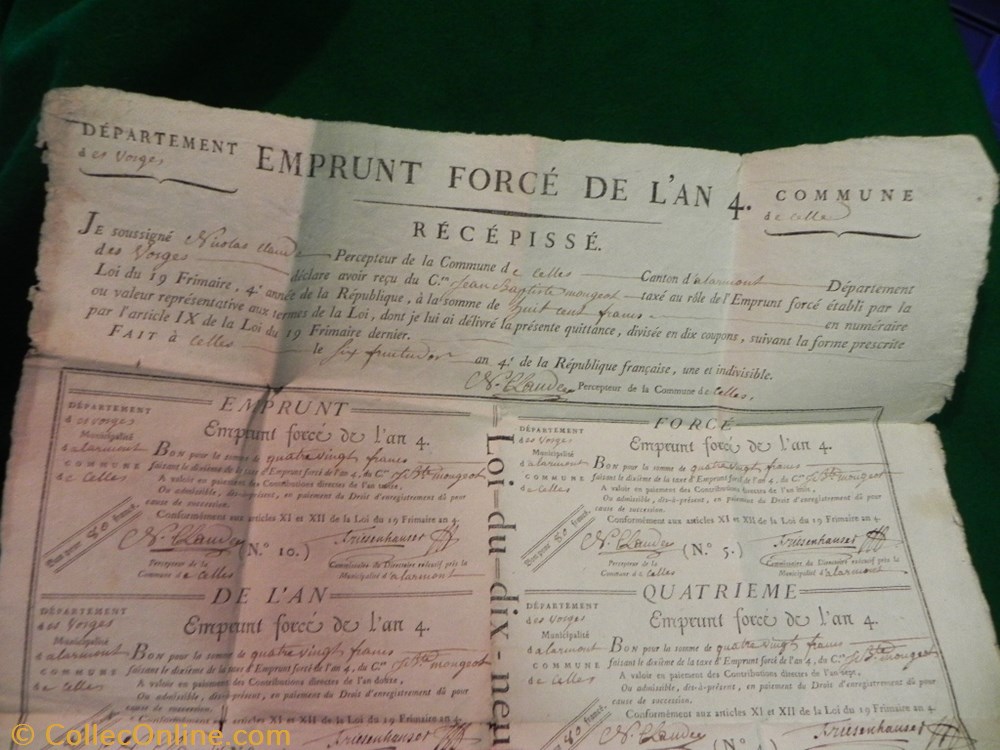 DÉPARTEMENT
des Vosges
EMPRUNT FORCÉ DE L'AN 4.
COMMUNE
de Celles
RÉCÉPISSÉ.
JE soussigné Nicolas Claude Percepteur de la Commune de Celles Canton d'alarmont Département
des Vosges déclare avoir reçu du C.en Jean Baptiste mongeot taxé au rôle de l'Emprunt forcé établi par la
Loi du 19 Frimaire, 4.e année de la République, à la somme de huit cent francs en numéraire
ou valeur représentative aux termes de la Loi, dont je lui ai délivré la présente quittance, divisée en dix coupons, suivant la forme prescrite
par l'article IX de la Loi du 19 Frimaire dernier.
FAIT à Celles le six fructidor an 4.e de la République française, une et indivisible.
N. Claude Percepteur de la Commune de Celles.
EMPRUNT
DÉPARTEMENT
des Vosges
Municipalité
d'alarmont
COMMUNE
de Celles
Emprunt forcé de l'an 4.
BON pour la somme de quatre vingt francs
faisant le dixième de la taxe d'Emprunt forcé de l'an 4, du C.en J Bte mongeot
A valoir en paiement des Contributions directes de l'an
Ou admissible, dès-à-présent, en paiement du Droit d'enregistrement dû pour
cause de succession.
Conformément aux articles XI et XII de la Loi du 19 Frimaire an 4.
Bon pour 80 francs.
N. Claude (N.o 10.) Friesenhauser
Percepteur de la
Commune de Celles
Commissaire du Directoire exécutif près la
Municipalité d'alarmont
FORCÉ
DÉPARTEMENT
des Vosges
Municipalité
d'alarmont
COMMUNE
de Celles
Emprunt forcé de l'an 4.
BON pour la somme de quatre vingt francs
faisant le dixième de la taxe d'Emprunt forcé de l'an 4, du C.en J Bte mongeot
A valoir en paiement des Contributions directes de l'an huit,
Ou admissible, dès-à-présent, en paiement du Droit d'enregistrement dû pour
cause de succession.
Conformément aux articles XI et XII de la Loi du 19 Frimaire an 4.
Bon pour 80 francs.
N. Claude (N.o 5.) Friesenhauser
Percepteur de la
Commune de Celles
Commissaire du Directoire exécutif près la
Municipalité d'alarmont
Loi-du-dix-neu
DE L'AN
DÉPARTEMENT
des Vosges
Municipalité
d'alarmont
COMMUNE
de Celles
Emprunt forcé de l'an 4.
BON pour la somme de quatre vingt francs
faisant le dixième de la taxe d'Emprunt forcé de l'an 4, du C.en J Bte mongeot
A valoir en paiement des Contributions directes de l'an douze,
Ou admissible, dès-à-présent, en paiement du Droit d'enregistrement dû pour
cause de succession.
Conformément aux articles XI et XII de la Loi du 19 Frimaire an 4.
Friesenhauser
QUATRIEME
DÉPARTEMENT
des Vosges
Municipalité
d'alarmont
COMMUNE
de Celles
Emprunt forcé de l'an 4.
BON pour la somme de quatre vingt francs
faisant le dixième de la taxe d'Emprunt forcé de l'an 4, du C.en J Bte mongeot
A valoir en paiement des Contributions directes de l'an sept,
Ou admissible, dès-à-présent, en paiement du Droit d'enregistrement dû pour
cause de succession.
Conformément aux articles XI et XII de la Loi du 19 Frimaire an 4.
80 francs.
N. Claude Friesenhauser
© CollecOnline.com